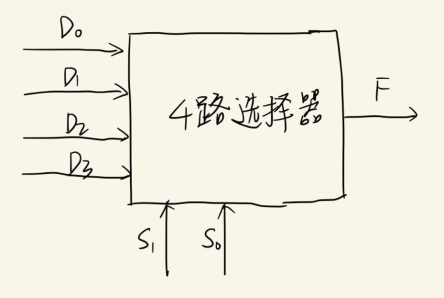 D₀
D₁
D₂
D₃
4路选择器
F
S₁
S₀